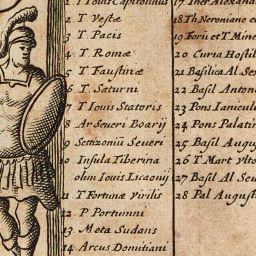 1 T Iouis Capitolinus
2 T Vestæ
3 T Pacis
4 T Romæ
5 T Faustinæ
6 T Saturni
7 T Iouis Statoris
8 Ar Seueri Boarij
9 Settizoniũ Seueri
10 Insula Tiberina
olim Iouis Licaonij
11 T Fortunæ Virilis
12 P Portumni
13 Meta Sudans
14 Arcus Domitiani
17 Ther Alexand
18 Th Neroniane e
19 Forũ et T Mine
20 Curia Hostil
21 Basilica Al Se
22 Basil Anton
23 Pons Ianicul
24 Pons Palatin
25 Basil Augu
26 T Mart Vlto
27 Basil Al Seu
28 Pal August